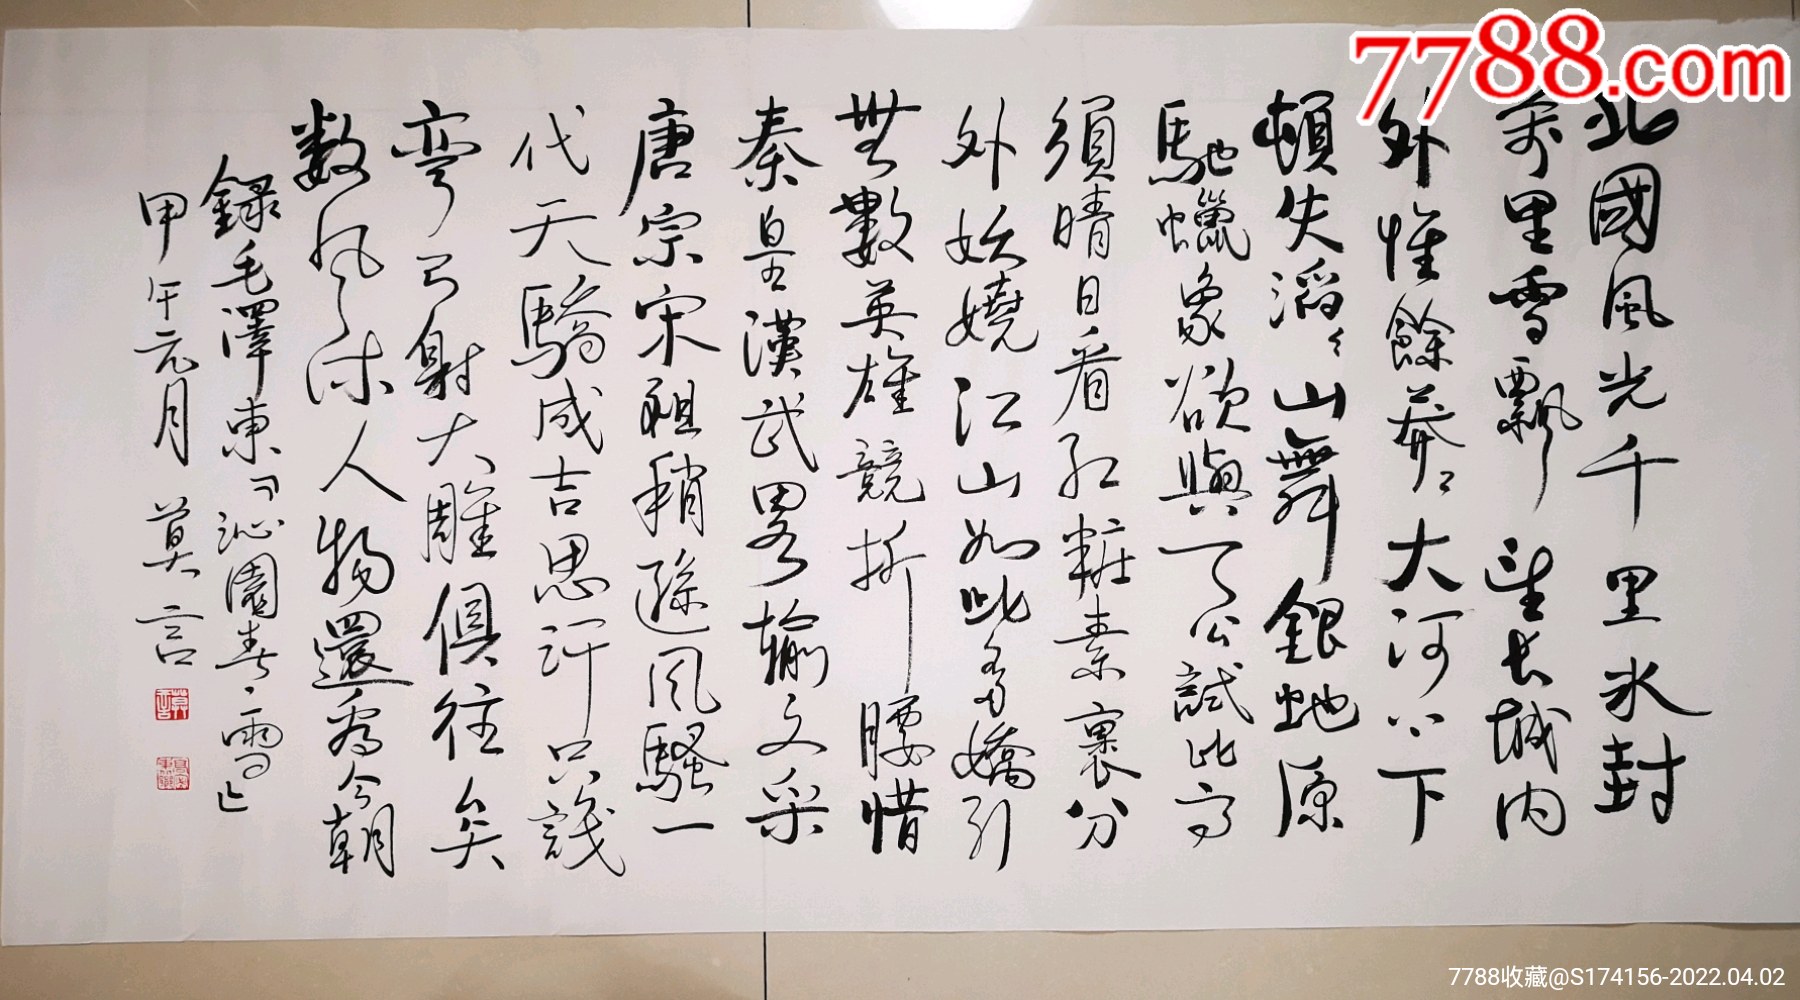 北國風光千里氷封
萬里雪飄望長城内
外惟餘莽〻大河上下
頓失滔〻山舞銀蛇原
馳蠟象欲與天公試比高
須晴日看紅粧素裹分
外妖嬈江山如此多嬌引
無數英雄競折腰惜
秦皇漢武畧輸文采
唐宗宋祖稍遜風騷一
代天驕成吉思汗只識
彎弓射大雕俱往矣
数風流人物還看今朝
録毛澤東「沁園春·雪」
甲午元月 莫言
莫言
7788.com
7788收藏@S174156-2022.04.02